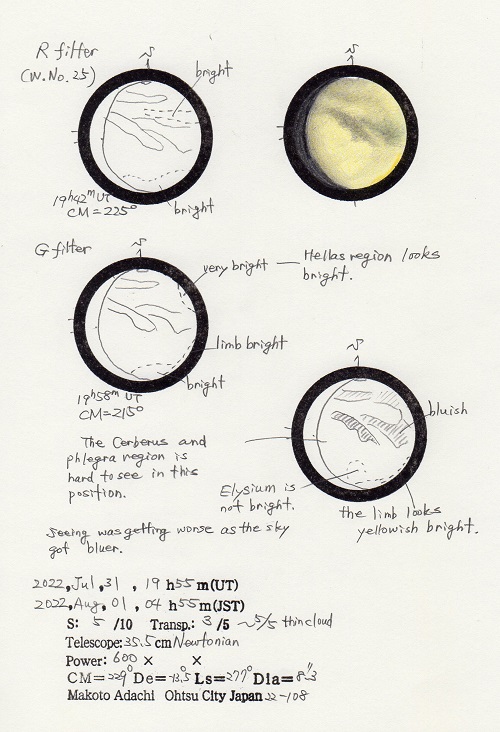 R filter
(W.No.25)
S
bright
19h42m UT
CM=225°
bright
S
G filter
S
very bright — Hellas region looks
bright.
limb bright
bright
19h58m UT
CM=215°
S
bluish
The Cerberus and
phlegra region is
hard to see in this
position.
Elysium is
not bright.
the limb looks
yellowish bright.
Seeing was getting worse as the sky
got bluer.
2022, Jul, 31, 19 h55 m(UT)
2022, Aug, 01, 04 h55 m(JST)
S: 5 /10 Transp.: 3 /5 ~5/5 thin cloud
Telescope: 35.5 cm Newtonian
Power: 600 × ×
CM=229° De=-13.5° Ls=277° Dia=8."3
Makoto Adachi Ohtsu City Japan 22-108